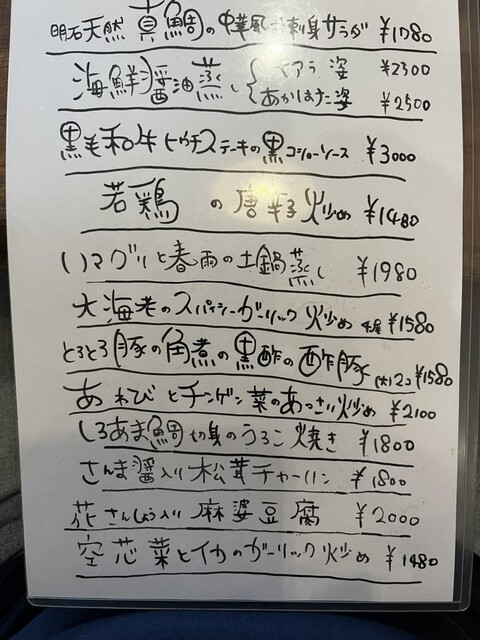 明石天然 真鯛の中華風お刺身サラダ ¥1780
海鮮醤油蒸し { 大アラ 姿 ¥2300
あかはた姿 ¥2500
黒毛和牛ヒウチステーキの黒コショーソース ¥3000
若鶏 の 唐辛子 火少め ¥1480
ハマグリと春雨の土鍋蒸し ¥1980
大海老のスパイシーガーリック 火少め ¥1580
とろとろ豚の角煮の黒酢の酢豚 (大)2コ ¥1580
あわびとチンゲン菜のあっさり火少め ¥2100
しろあま鯛切身のうろこ焼き ¥1800
さんま醤入り松茸チャーハン ¥1800
花さんしょう入り 麻婆豆腐 ¥2000
空芯菜とイカのガーリック火少め ¥1480